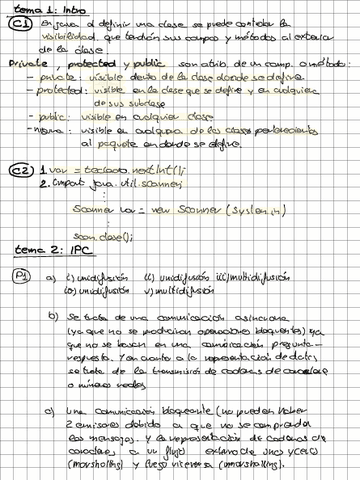 tema 1: Intro
C1 en java al definir una clase se puede controlar la
visibilidad que tendrán sus campos y métodos al exterior
de la clase:
Private, protected y public son atrib. de un camp. o método:
- private: visible dentro de la clase donde se define
- protected: visible en la clase que se define y en cualquiera
de sus subclase
- public: visible en cualquier clase
- ninguna: visible en cualquiera de las clases pertenecientes
al paquete en donde se define.
C2 1. var = teclado.nextInt();
2. import java.util.scanner;
Scanner = new Scanner (System.in)
scan.close();
tema 2: IPC
P1 a) i) unidifusión ii) unidifusión iii) multidifusión
iv) unidifusión v) multidifusión
b) Se trata de una comunicación asíncrona
(ya que no se producirían operaciones bloqueantes) ya
que no se basan en una comunicación pregunta-
respuesta. Y en cuanto a la representación de datos
se trata de la transmisión de cadenas de caracteres
o números
Una comunicación bloqueante (no pueden haber
2 emisores debido a que no se
los mensajes. Y la representación de cadenas de
caracteres a un flujo externo de
(marshalling) y luego viceversa (unmarshalling).